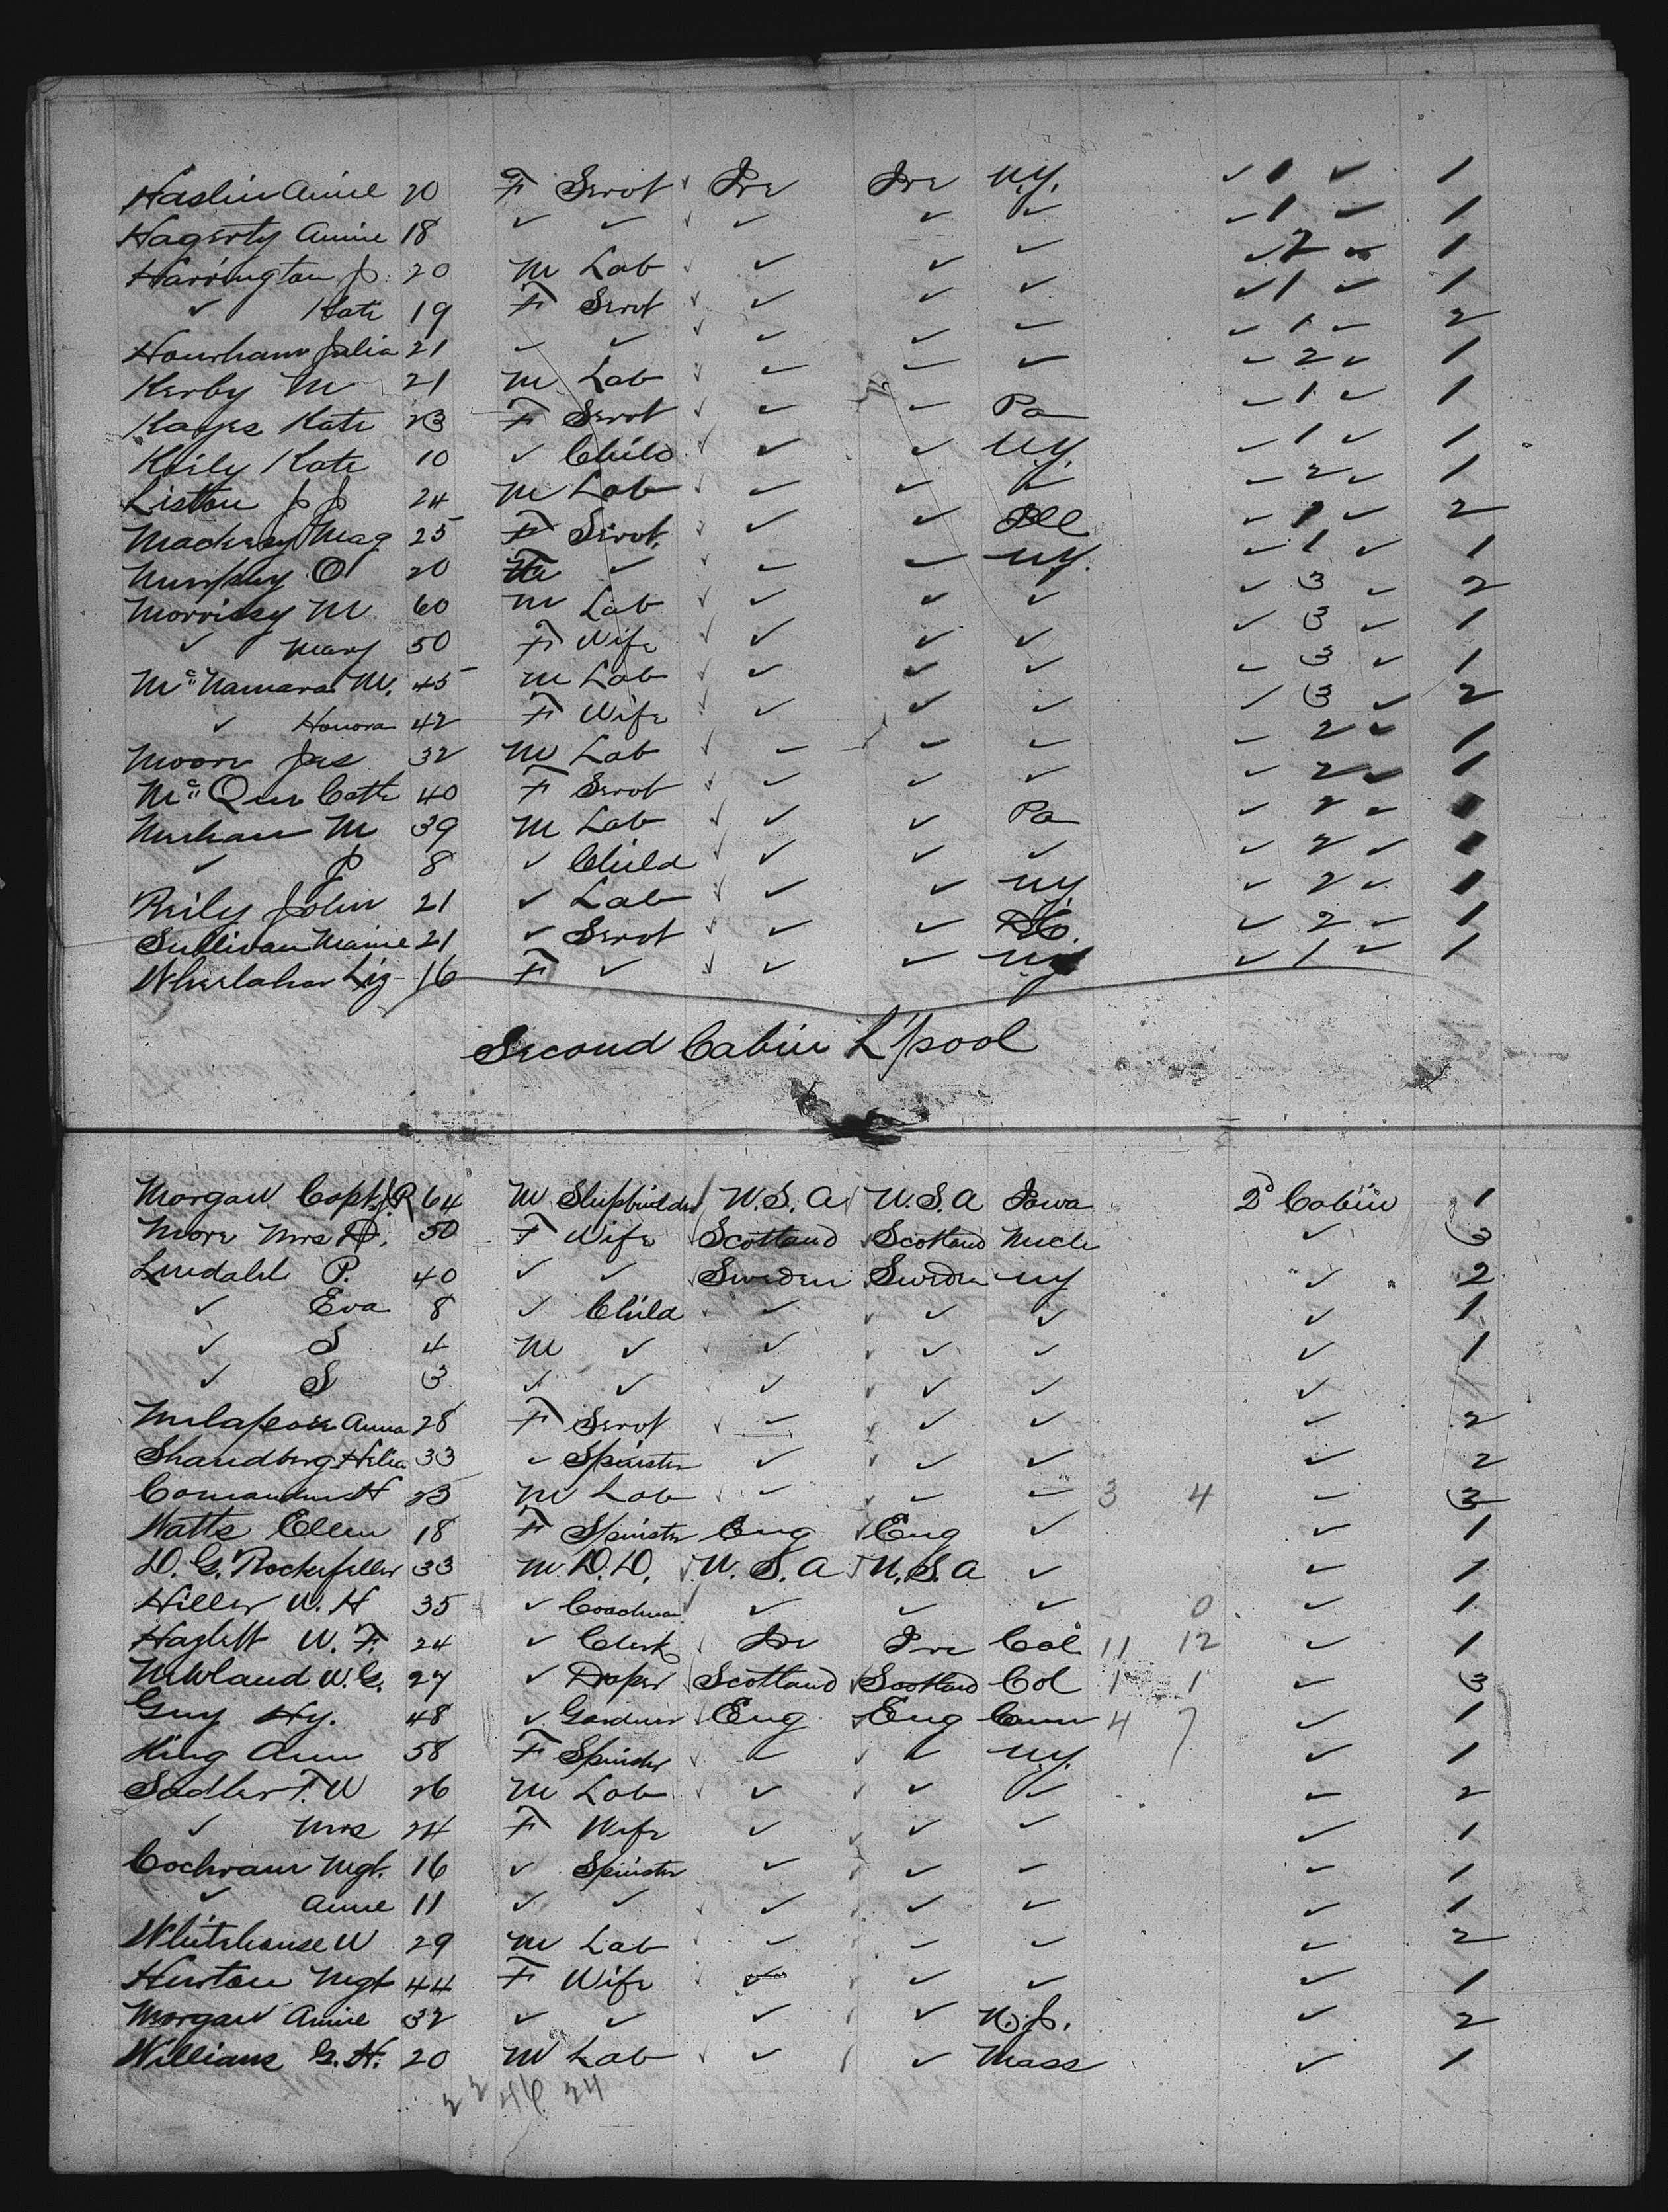 Haslin Annie 20 F Servt ✓ Ire Ire N.Y. ✓ 1 ✓ 1
Hagerty Annie 18 ✓ ✓ ✓ ✓ ✓ ✓ ✓ 1 ✓ 1
Harrington J. 20 M Lab ✓ ✓ ✓ ✓ ✓ 2 ✓ 1
✓ Kate 19 F Servt ✓ ✓ ✓ ✓ ✓ 1 ✓ 1
Hourham Julia 21 ✓ ✓ ✓ ✓ ✓ ✓ ✓ 1 ✓ 2
Kerby M 21 M Lab ✓ ✓ ✓ ✓ ✓ 2 ✓ 1
Kayes Kate 23 F Servt ✓ ✓ ✓ Pa ✓ 1 ✓ 1
Kiely Kate 10 ✓ Child ✓ ✓ ✓ N.Y. ✓ 1 ✓ 1
Liston J J 24 M Lab ✓ ✓ ✓ ✓ ✓ 2 ✓ 1
Mackesy Mag 25 F Servt. ✓ ✓ ✓ Ill ✓ 1 ✓ 2
Murphy O 20 ✓ ✓ ✓ N.Y. ✓ 1 ✓ 1
Morrissy M 60 M Lab ✓ ✓ ✓ ✓ ✓ 3 ✓ 2
✓ Mary 50 F Wife ✓ ✓ ✓ ✓ ✓ 3 ✓ 1
McNamara M. 45 M Lab ✓ ✓ ✓ ✓ ✓ 3 ✓ 1
✓ Honora 42 F Wife ✓ ✓ ✓ ✓ ✓ 3 ✓ 2
Moore Jas 32 M Lab ✓ ✓ ✓ ✓ ✓ 2 ✓ 1
Mc Cath 40 F Servt ✓ ✓ ✓ ✓ ✓ 2 ✓ 1
M 39 M Lab ✓ ✓ ✓ Pa ✓ 2 ✓ 1
✓ P 8 ✓ Child ✓ ✓ ✓ ✓ ✓ 2 ✓ 1
Reily John 21 ✓ Lab ✓ ✓ ✓ N.Y. ✓ 2 ✓ 1
Sullivan 21 ✓ Servt ✓ ✓ ✓ ✓ 2 ✓ 1
Whelahan Liz 16 F ✓ ✓ ✓ ✓ N.Y. ✓ 1 ✓ 1
Second Cabin L'pool
Morgan Capt. J.R 64 M Shipbuilder U.S.A U.S.A Iowa 2d Cabin 1
More Mrs D. 50 F Wife Scotland Scotland Mich ✓ 3
Lindahl P. 40 ✓ ✓ Sweden Sweden N.Y. ✓ 2
✓ Eva 8 ✓ Child ✓ ✓ ✓ ✓ 1
✓ S 4 M ✓ ✓ ✓ ✓ ✓ 1
✓ S 3 ✓ ✓ ✓ ✓ ✓ ✓
Anna 28 F Servt ✓ ✓ ✓ ✓ 2
Shandberg Hilia 33 ✓ Spinster ✓ ✓ ✓ ✓ 2
H 23 M Lab ✓ ✓ ✓ 3 4 ✓ 3
Watts Ellen 18 F Spinster Eng Eng ✓ ✓ 1
D. G. Rockefeller 33 M D.D. U.S.A U.S.A ✓ ✓ 1
Hiller W. H 35 ✓ Coachman ✓ ✓ ✓ 0 ✓ 1
Hazlett W. F. 24 ✓ Clerk Ire Ire Col 11 12 ✓ 1
Newland W. G. 27 ✓ Draper Scotland Scotland Col 1 1 ✓ 3
Guy Hy. 48 ✓ Gardner Eng Eng Conn 4 7 ✓ 1
King Ann 58 F Spinster ✓ ✓ N.Y. ✓ 1
Sadler F. W 26 M Lab ✓ ✓ ✓ ✓ 2
✓ Mrs 24 F Wife ✓ ✓ ✓ ✓ 1
Cochrane Mgt. 16 ✓ Spinster ✓ ✓ ✓ ✓ 1
✓ Anne 11 ✓ ✓ ✓ ✓ ✓ ✓ 1
Whitehouse W 29 M Lab ✓ ✓ ✓ ✓ 2
Hurton Mgt 44 F Wife ✓ ✓ ✓ ✓ 1
Morgan Annie 32 ✓ ✓ ✓ ✓ N.J. ✓ 2
Williams G. H. 20 M Lab ✓ ✓ Mass ✓ 1
22 46 24